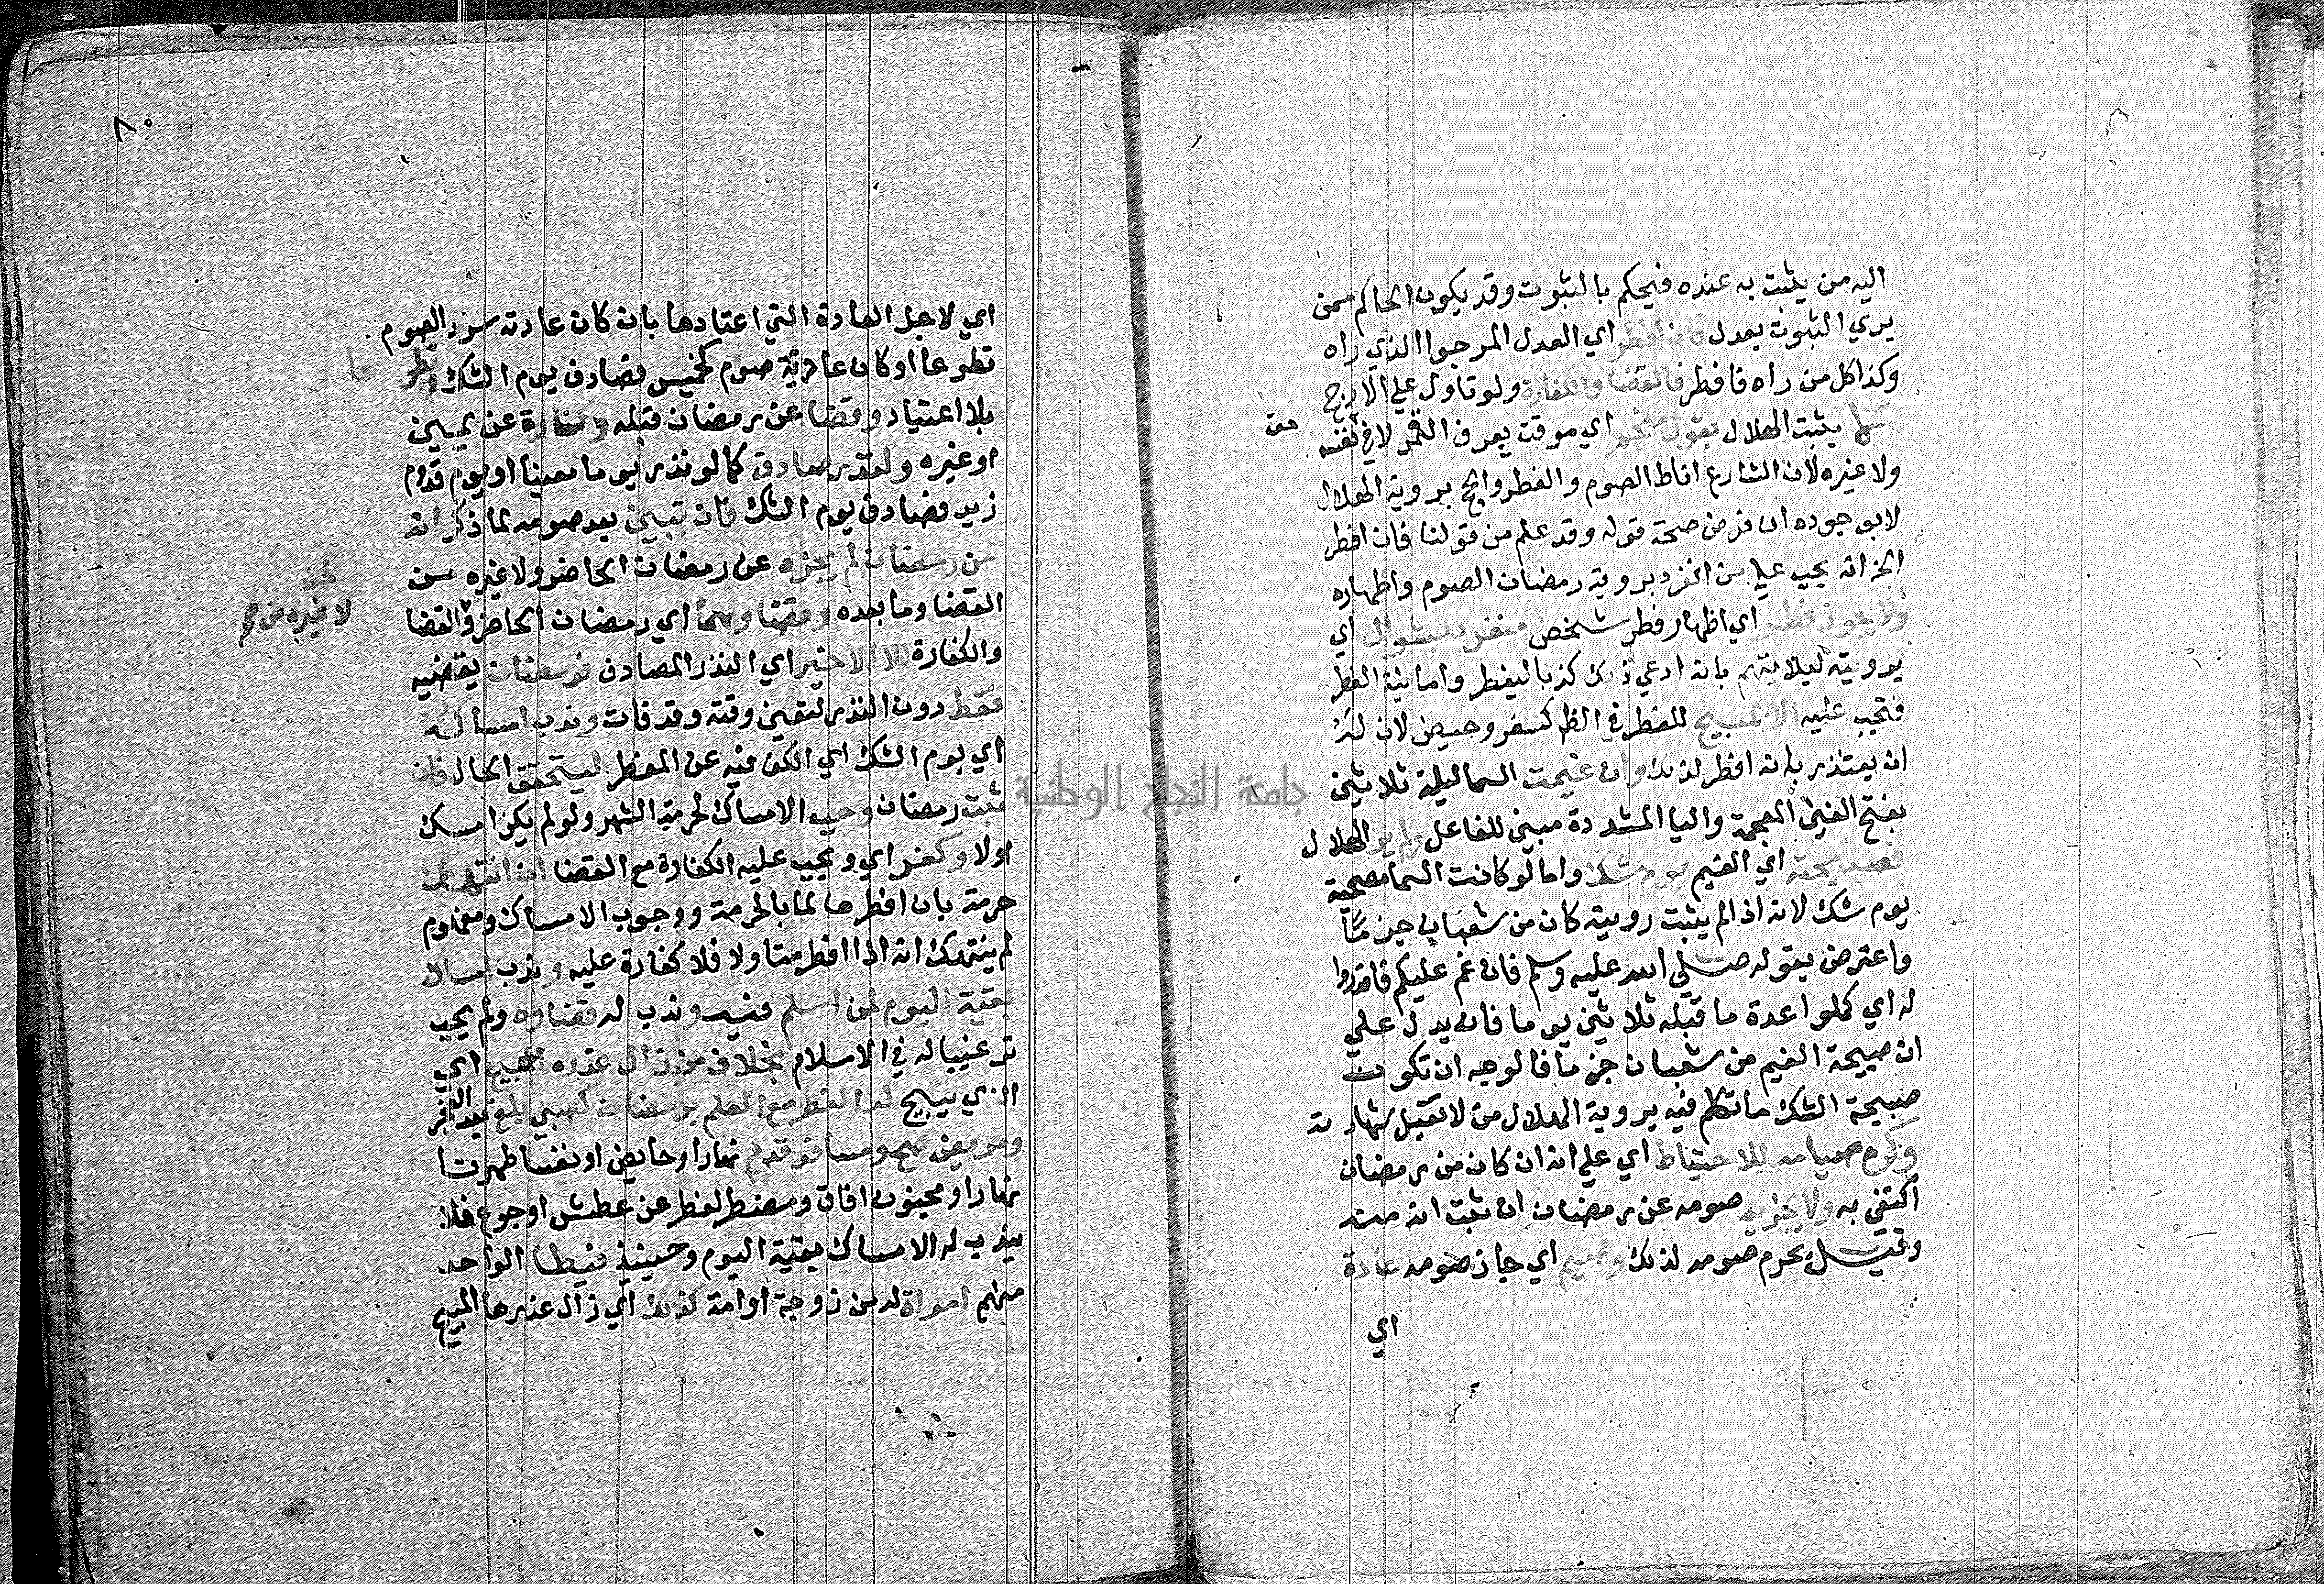 اليه من يثبت به عنده فيحكم بالثبوت وقد يكون الحاكم ممن
يري الثبوت بعدل فان افطر اي العدل المرجوا الذي راه
وكذا كل من راه فافطر فالقضا والكفارة ولو تاول علي الارجح
يثبت الهلال بقول منجم اي موقت يعرف القمر لا في نفسه
ولا غيره لان الشارع اناط الصوم والفطر والحج بروية الهلال
لا بوجوده ان فرض صحة قوله وقد علم من قولنا فان افطر
الخ انه يجب علي من انفرد بروية رمضان الصوم واظهاره
ولا يجوز فطر اي اظهار فطر شخص منفرد بشوال اي
برويته ليلا يتهم بانه ادعي ذلك كذبا ليفطر واما نية الفطر
فتجب عليه الا لمبيح للفطر في الظاهر كسفر وحيض لان له
ان يعتذر بانه افطر لذلك وان غيمت السما ليلة ثلاثين
بفتح الغين المعجمة واليا المشددة مبني للفاعل ولم ير الهلال
فصبيحته اي الغيم يوم شك واما لو كانت السما مصحية
يوم شك لانه اذا لم يثبت رويته كان من شعبان جزما
واعترض بقوله صلي الله عليه وسلم فان غم عليكم فاقدروا
له اي كملوا عدة ما قبله ثلاثين يوما فان يدل علي
ان صبيحة الغيم من شعبان جزما فالوجه ان تكون
صبيحة الشك ما تكلم فيه بروية الهلال من لا تقبل شهادته
وكره صيامه للاحتياط اي علي انه ان كان من رمضان
اكتفي به ولا يجزيه صومه عن رمضان ان ثبت انه منه
وقيل يحرم صومه لذلك وصيم اي جاز صومه عادة
اي
جامعة النجاح الوطنية
٨٠
اي لاجل العادة التي اعتادها بان كان عادته سرد الصوم
تطوعا او كان عادته صوم كخميس فصادف يوم الشك وتطوعا
بلا اعتياد وقضا عن رمضان قبله وكفارة عن يمين
او غيره ولنذر صادق كما لو نذر يوما معينا او يوم قدوم
زيد فصادف يوم الشك فان تبين بعد صومه لما ذكر انه
من رمضان لم يجزه عن رمضان الحاضر ولا غيره من
لا غيره من
القضا وما بعده وقضاهما اي رمضان الحاضر والقضا
والكفارة الا الاخير اي النذر المصادف فرمضان يقضيه
فقط دون النذر لتعين وقته وقد فات وندب امساكه
اي يوم الشك اي الكف فيه عن المفطر ليتحقق الحال فان
ثبت رمضان وجب الامساك لحرمة الشهر ولو لم يكن امسك
اولا وكفر اي ويجب عليه الكفارة مع القضا ان انتهك
حرمته بان افطر عالما بالحرمة ووجوب الامساك ومفهوم
لم ينتهك انه اذا افطر متاولا فلا كفارة عليه وندب امساك
بقية اليوم لمن اسلم فيه وندب له قضاوه ولم يجب
ترغيبا له في الاسلام بخلاف من زال عذره المبيح اي
الذي يبيح له الفطر مع العلم برمضان كصبي بلغ بعد الفجر
ومريض صح ومسافر قدم نهارا وحايض او نفسا طهرتا
نهارا ومجنون افاق ومضطر لفطر عن عطش او جوع فلا
يندب له الامساك بقية اليوم وحينيذ فيطا الواحد
منهم امراة له من زوجة او امة كذلك اي زال عذرها المبيح